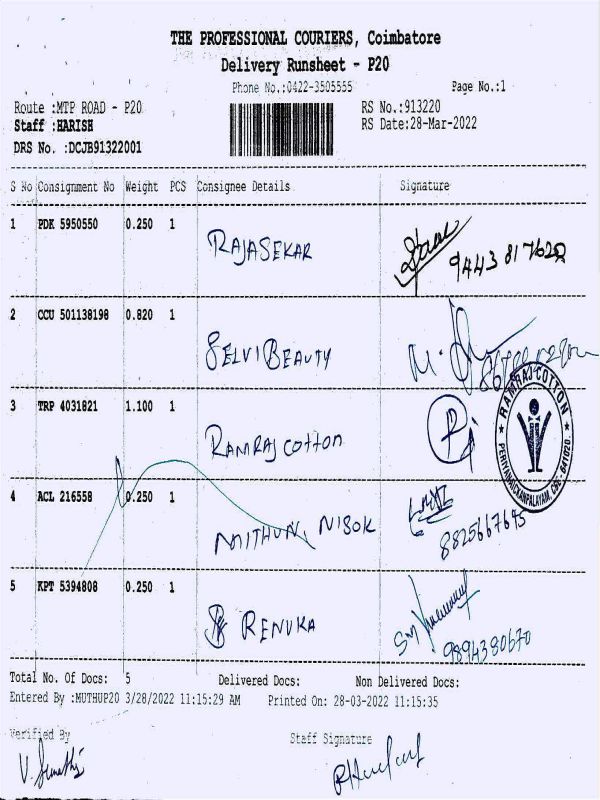 THE PROFESSIONAL COURIERS, Coimbatore
Delivery Runsheet - P20
Phone No.:0422-3505555 Page No.:1
Route :MTP ROAD - P20 RS No.:913220
Staff :HARISH RS Date:28-Mar-2022
DRS No. :DCJB91322001
S No Consignment No Weight PCS Consignee Details Signature
1 PDK 5950550 0.250 1 RAJASEKAR
2 CCU 501138198 0.820 1 SELVI BEAUTY
3 TRP 4031821 1.100 1 RAMRAJ COTTON
RAMRAJ COTTON
PERIYANAICKANPALAYAM, CBE - 641020.
4 ACL 216558 0.250 1 MITHUN, NISOK 8825667645
5 KPT 5394808 0.250 1 RENUKA 9894380670
Total No. Of Docs: 5 Delivered Docs: Non Delivered Docs:
Entered By :MUTHUP20 3/28/2022 11:15:29 AM Printed On: 28-03-2022 11:15:35
Verified By Staff Signature